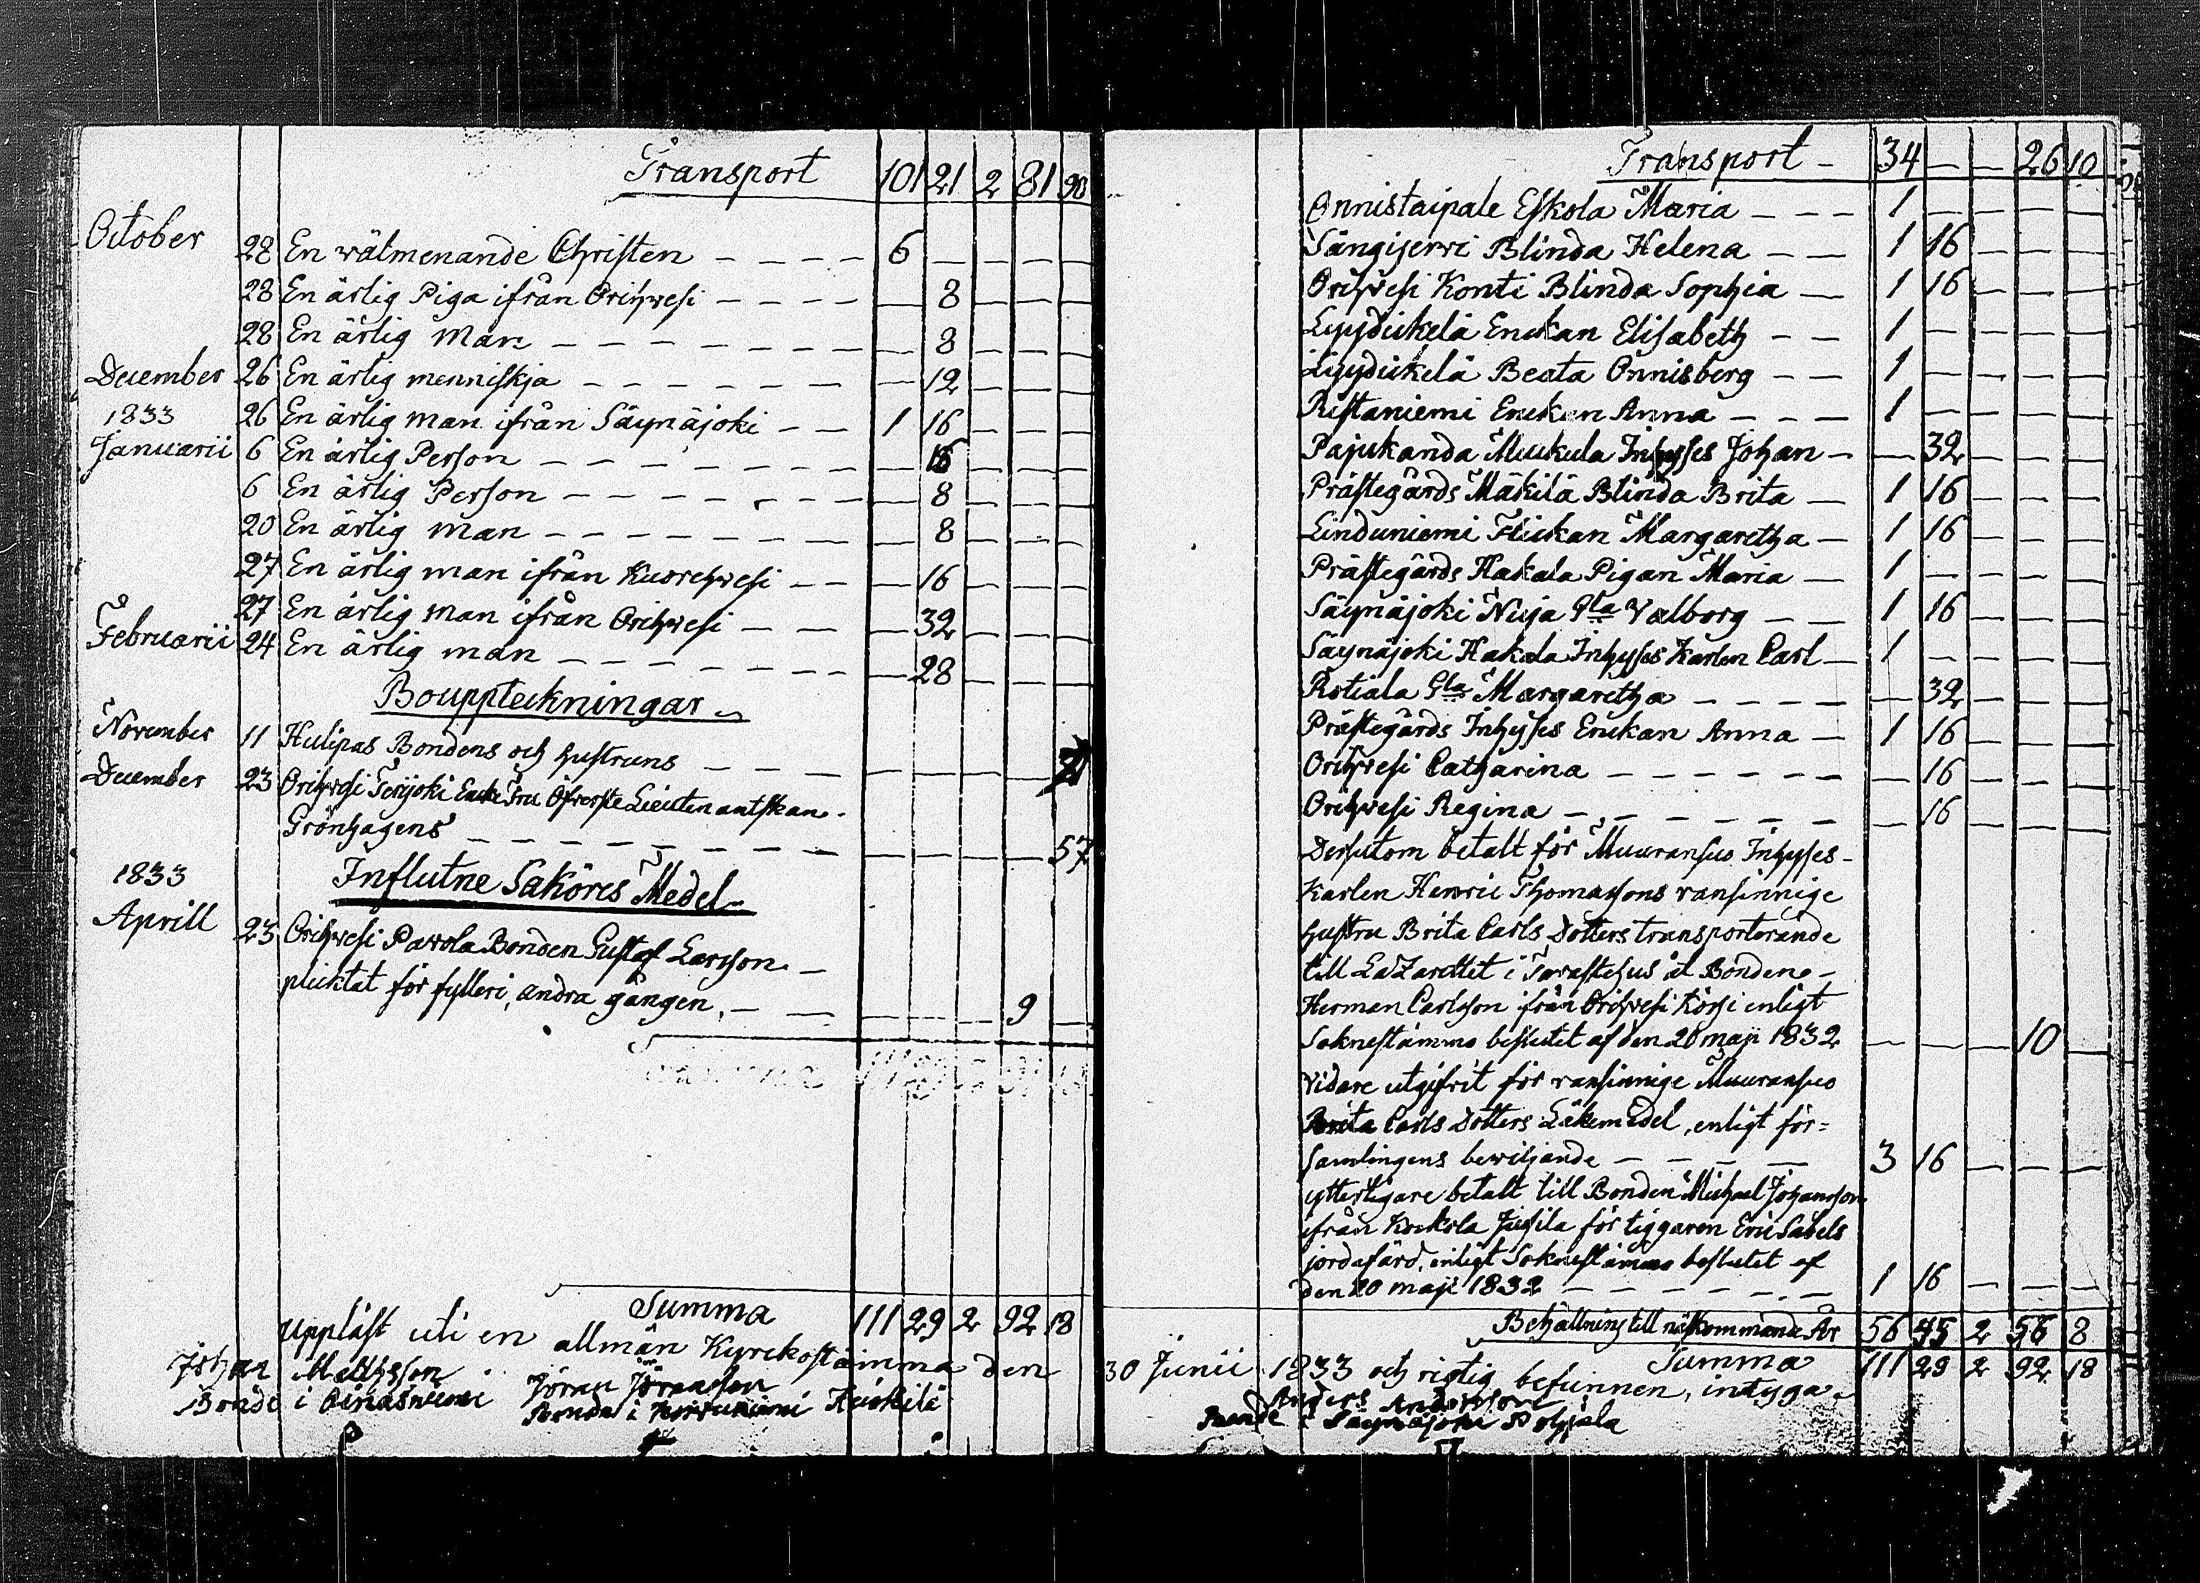 Transport 101 21 2 81 90
October 28 En wälmenande Christen – – – – 6 – – – –
28 En ärlig Piga ifrån Orihvesi – – – – – 8 – – –
28 En ärlig man – – – – – – – – 8 – – –
December 26 En ärlig menniskja – – – – – – – 12 – – –
1833 26 En ärlig man ifrån Säynäjoki – – 1 16 – – –
Januarii 6 En ärlig Person – – – – – – – – 16 – – –
6 En ärlig Person – – – – – – – – 8 – – –
20 En ärlig man – – – – – – – – 8 – – –
27 En ärlig man ifrån Kuorehvesi – – – 16 – – –
27 En ärlig man ifrån Orihvesi – – – 32 – – –
Februarii 24 En ärlig man – – – – – – – – 28 – – –
Bouppteckningar
November 11 Hulipas Bondens och hustruns – – – – – – –
December 23 Orihvesi Öfverste Lieutenantskan
Grönhagens – – – – – – – – – – – – 57
1833 Influtne Saköres Medel
Aprill 23 Orihvesi Parola Bonden Gustaf Larsson –
plicktat för fylleri, andra gången, – – – – – 9 –
Summa 111 29 2 92 18
Uppläst uti en allmän Kyrckostämma den
Johan Matthsson
Bonde i
Jöran Jöransson
Bonde i
Transport – 34 – – 26 10
Onnistaipale Eskola Maria – – – 1 – – – –
Sängijerwi Blinda Helena – – 1 16 – – –
Orihvesi Konti Blinda Sophia – 1 16 – – –
Lyydickelä Enckan Elisabeth – – 1 – – – –
Lyydickelä Beata Onnisberg – – 1 – – – –
Ristaniemi Enckan Anna – – – 1 – – – –
Pajukanda Muukula Inhyses Johan – – 32 – – –
Prästegårds Mäkilä Blinda Brita – 1 16 – – –
Linduniemi Flickan Margaretha – 1 16 – – –
Prästegårds Hakala Pigan Maria – 1 – – – –
Säynäjoki Nuja Gla Walborg – – 1 16 – – –
Säynäjoki Hakala Inhyses Karlen Carl – 1 – – – –
Rotiala Gla Margaretha – – – – – 32 – – –
Prästegårds Inhyses Enckan Anna – 1 16 – – –
Orihvesi Catharina – – – – – – – 16 – – –
Orihvesi Regina – – – – – – – 16 – – –
Dessutom betalt för Muuransuo Inhyses-
Karlen Henric Thomassons vansinnige
hustru Brita Carls Dotters transporterande
till Lazarettet i Tavastehus åt Bonden
Herman Carlsson ifrån Orihvesi Körsi enligt
Soknestämmo beslutet af den 20 maji 1832 – – – 10 –
Vidare utgifvit för vansinnige Muuransuo
Brita Carls Dotters Läkemedel, enligt för=
samlingens bewiljande – – – – 3 16 – – –
ytterligare betalt till Bonden Michael Johansson
ifrån Jussila för tiggaren Eric Sabels
jordafärd, enligt Soknestämmo beslutet af
den 20 maji 1832 – – – – – – 1 16 – – –
Behållning till näskommande År 56 45 2 56 8
Summa 111 29 2 92 18
30 Junii 1833 och rigtig befunnen, intyga
Anders Andersson
Bonde i Säynäjoki Pohjala